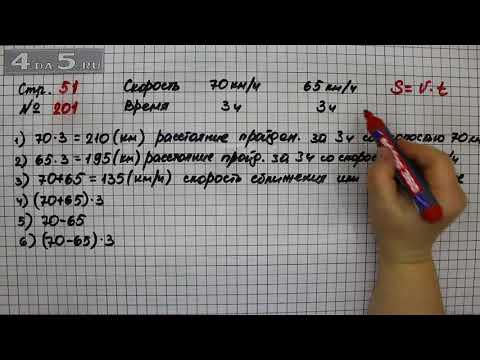 4DA5.RU
Стр. 51 Скорость 70 км/ч 65 км/ч S = V · t
№ 201 Время 3 ч 3 ч
1) 70 · 3 = 210 (км) расстояние пройден. за 3ч со скоростью 70 км
2) 65 · 3 = 195 (км) расстояние пройд. за 3ч со скорос
3) 70 + 65 = 135 (км/ч) скорость сближения или
4) (70 + 65) · 3
5) 70 - 65
6) (70 - 65) · 3